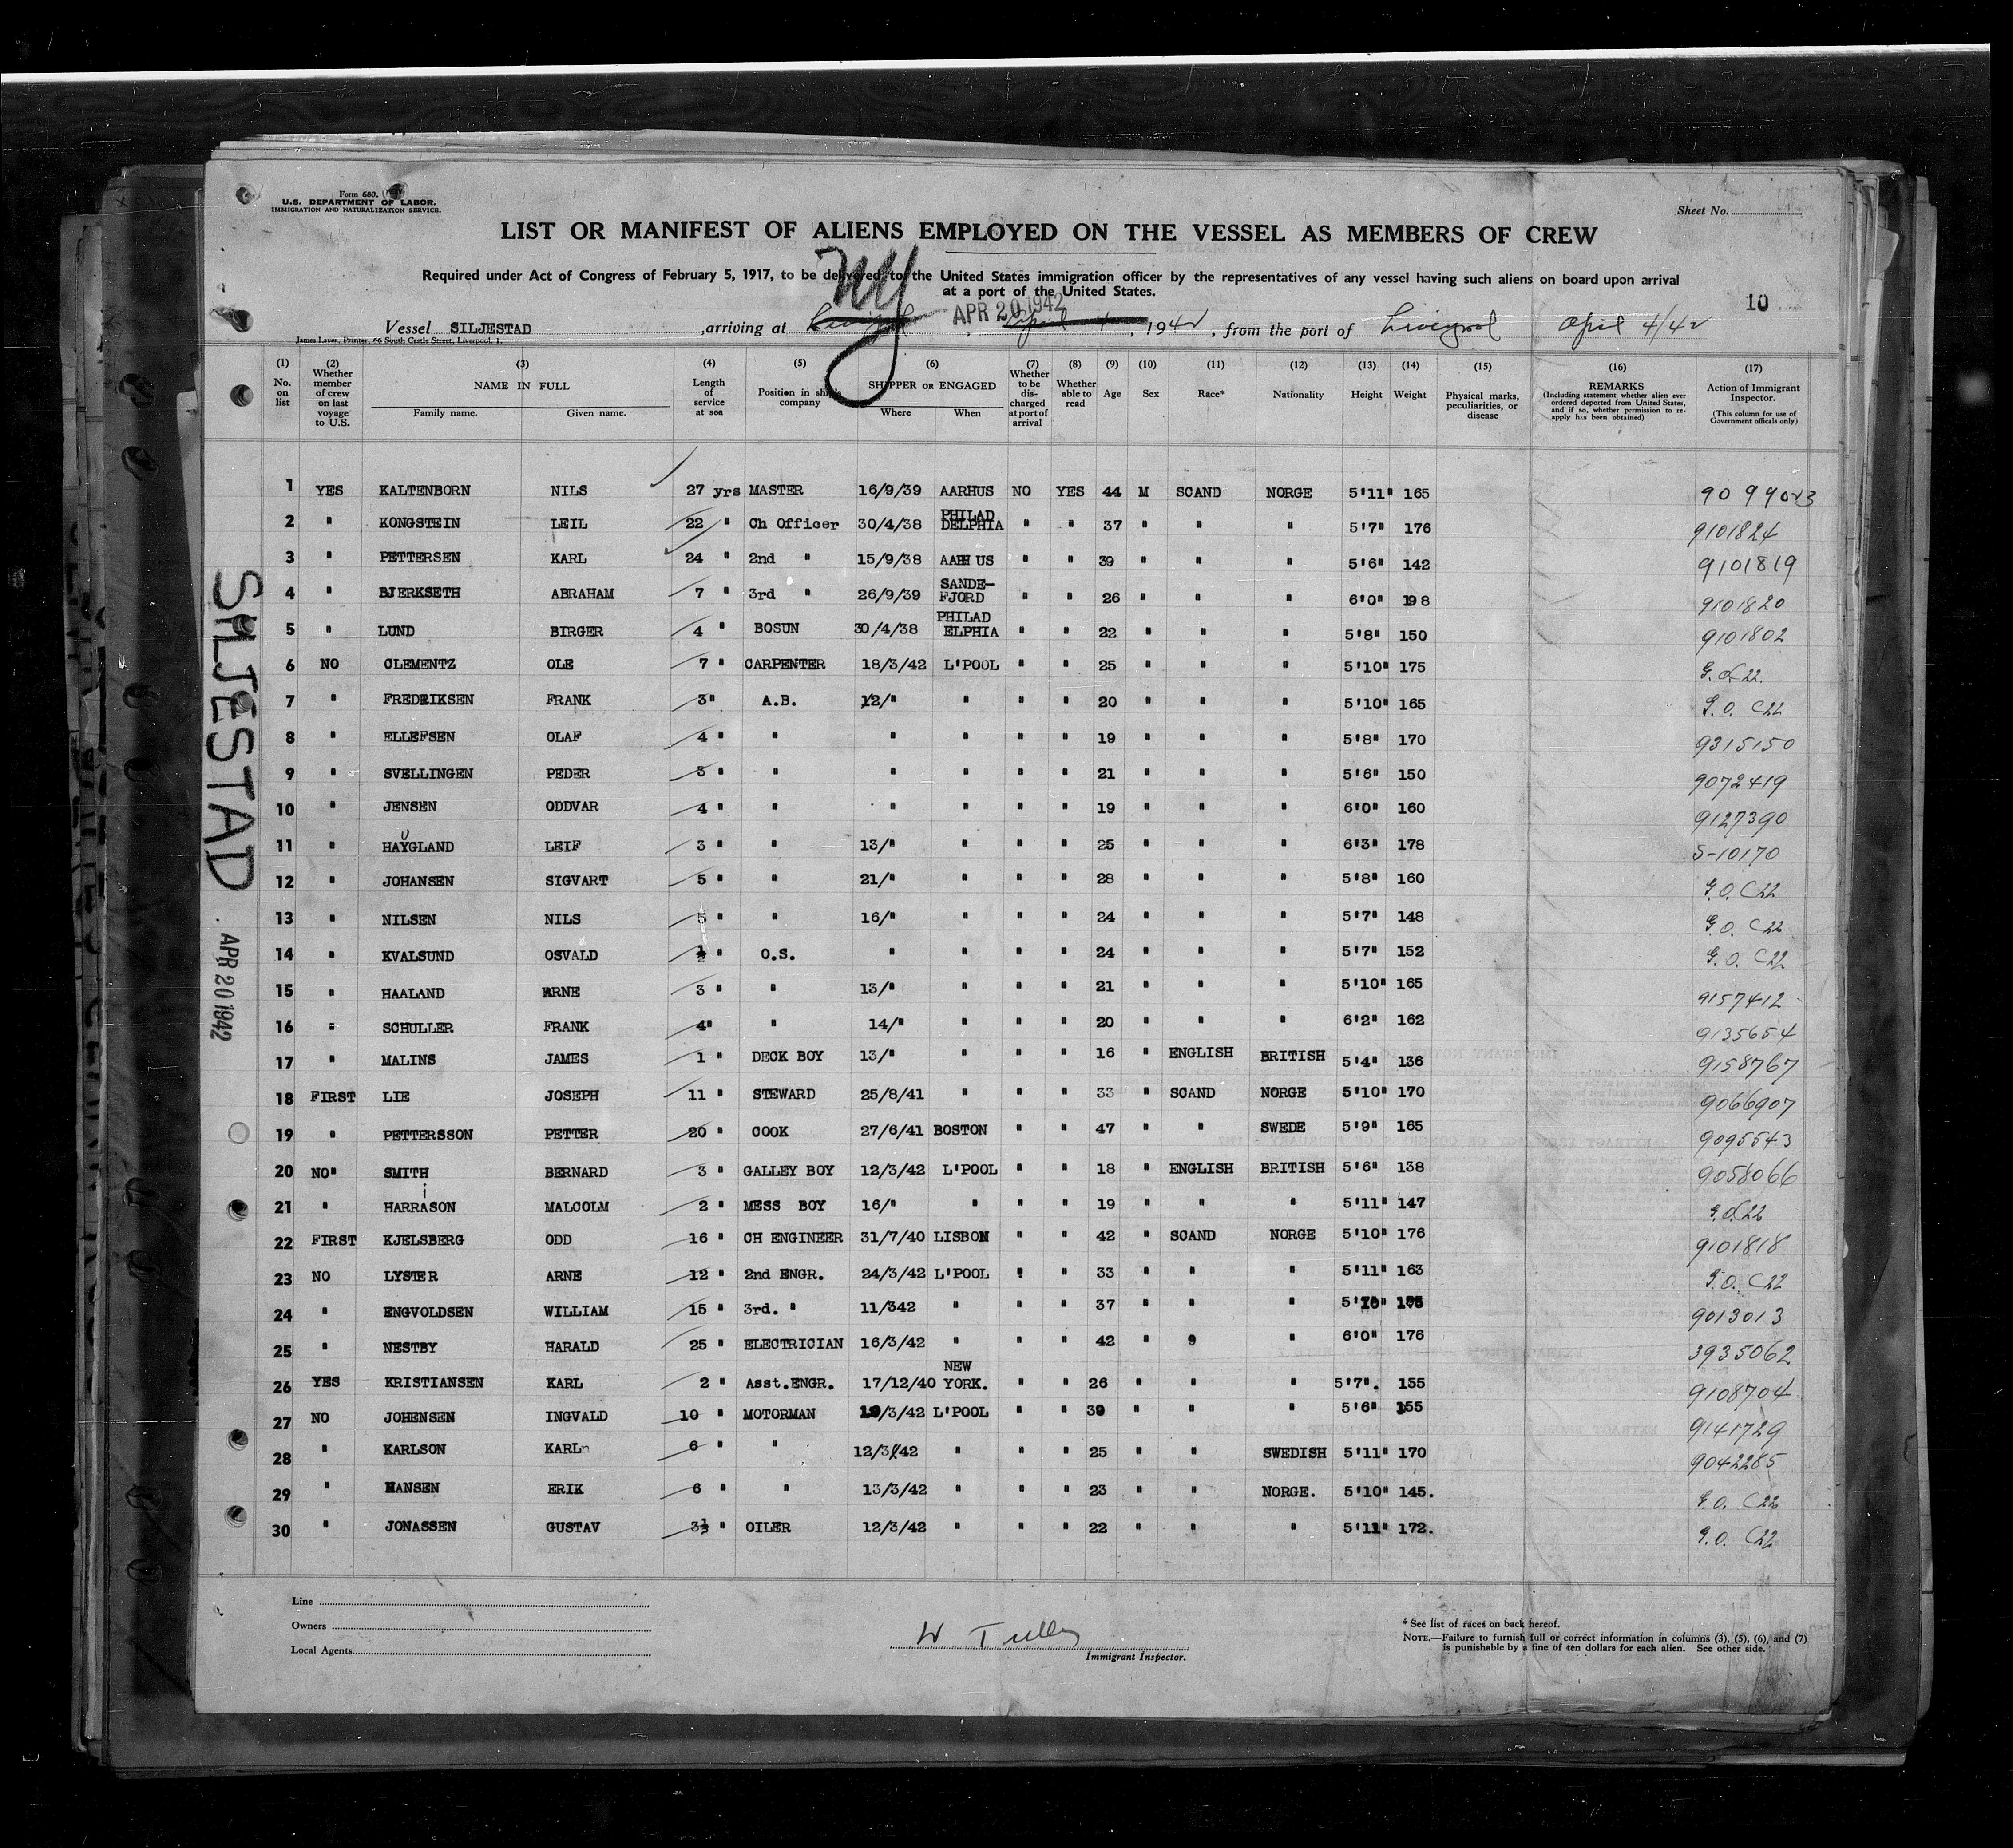 Form 680.
U.S. DEPARTMENT OF LABOR.
IMMIGRATION AND NATURALIZATION SERVICE.
Sheet No.
LIST OR MANIFEST OF ALIENS EMPLOYED ON THE VESSEL AS MEMBERS OF CREW
Required under Act of Congress of February 5, 1917, to be delivered to the United States immigration officer by the representatives of any vessel having such aliens on board upon arrival
at a port of the United States.
10
NY
APR 20 1942
Vessel SILJESTAD ,arriving at Liverpool , April 4 , 1942 , from the port of Liverpool April 4/42
James Laver, Printer, 66 South Castle Street, Liverpool, 1.
(1) No. on list (2) Whether member of crew on last voyage to U.S. (3) NAME IN FULL Family name. Given name. (4) Length of service at sea (5) Position in ship's company (6) SHIPPED OR ENGAGED Where When (7) Whether to be discharged at port of arrival (8) Whether able to read (9) Age (10) Sex (11) Race* (12) Nationality (13) Height (14) Weight (15) Physical marks, peculiarities, or disease (16) REMARKS (Including statement whether alien ever ordered deported from United States, and if so, whether permission to re-apply has been obtained) (17) Action of Immigrant Inspector. (This column for use of Government officals only)
1 YES KALTENBORN NILS 27 yrs MASTER 16/9/39 AARHUS NO YES 44 M SCAND NORGE 5'11" 165
2 " KONGSTEIN LEIL 22 " Ch Officer 30/4/38 PHILAD DELPHIA " " 37 " " " 5'7" 176 9101824
3 " PETTERSEN KARL 24 " 2nd " 15/9/38 AARHUS " " 39 " " " 5'6" 142 9101819
4 " BJERKSETH ABRAHAM 7 " 3rd " 26/9/39 SANDE-FJORD " " 26 " " " 6'0" 198 9101820
5 " LUND BIRGER 4 " BOSUN 30/4/38 PHILAD ELPHIA " " 22 " " " 5'8" 150 9101802
6 NO CLEMENTZ OLE 7 " CARPENTER 18/3/42 L'POOL " " 25 " " " 5'10" 175
7 " FREDRIKSEN FRANK 3" A.B. 12/" " " " 20 " " " 5'10" 165 G.O. C22
8 " ELLEFSEN OLAF 4 " " " " " " 19 " " " 5'8" 170 9315150
9 " SVELLINGEN PEDER 3 " " " " " " 21 " " " 5'6" 150 9072419
10 " JENSEN ODDVAR 4 " " " " " " 19 " " " 6'0" 160 9127390
11 " HAUGLAND LEIF 3 " " 13/" " " " 25 " " " 6'3" 178 S-10170
12 " JOHANSEN SIGVART 5 " " 21/" " " " 28 " " " 5'8" 160 G.O. C22
13 " NILSEN NILS 5 " " 16/" " " " 24 " " " 5'7" 148 G.O. C22
14 " KVALSUND OSVALD ½ " O.S. " " " " 24 " " " 5'7" 152 G.O. C22
15 " HAALAND ARNE 3 " " 13/" " " " 21 " " " 5'10" 165 9157412
16 " SCHULLER FRANK 4" " 14/" " " " 20 " " " 6'2" 162 9135654
17 " MALINS JAMES 1 " DECK BOY 13/" " " " 16 " ENGLISH BRITISH 5'4" 136 9158767
18 FIRST LIE JOSEPH 11 " STEWARD 25/8/41 " " " 33 " SCAND NORGE 5'10" 170 9066907
19 " PETTERSSON PETTER 20 " COOK 27/6/41 BOSTON " " 47 " " SWEDE 5'9" 165 9095543
20 NO" SMITH BERNARD 3 " GALLEY BOY 12/3/42 L'POOL " " 18 " ENGLISH BRITISH 5'6" 138 9058066
21 " HARRISON MALCOLM 2 " MESS BOY 16/" " " " 19 " " " 5'11" 147
22 FIRST KJELSBERG ODD 16 " CH ENGINEER 31/7/40 LISBON " " 42 " SCAND NORGE 5'10" 176 9101818
23 NO LYSTER ARNE 12 " 2nd ENGR. 24/3/42 L'POOL " " 33 " " " 5'11" 163 G.O. C22
24 " ENGVOLDSEN WILLIAM 15 " 3rd. " 11/342 " " " 37 " " " 9013013
25 " NESTBY HARALD 25 " ELECTRICIAN 16/3/42 " " " 42 " " " 6'0" 176 3935062
26 YES KRISTIANSEN KARL 2 " Asst.ENGR. 17/12/40 NEW YORK. " " 26 " " " 5'7". 155 9108704
27 NO JOHENSEN INGVALD 10 " MOTORMAN L'POOL " " 39 " " " 5'6" 155 9141729
28 " KARLSON KARL 6 " " 12/3/42 " " " 25 " " SWEDISH 5'11" 170 9042285
29 " HANSEN ERIK 6 " " 13/3/42 " " " 23 " " NORGE. 5'10" 145. G.O. C22
30 " JONASSEN GUSTAV 3½ " OILER 12/3/42 " " " 22 " " " 5'11" 172. G.O. C22
SILJESTAD
APR 20 1942
Line
Owners
Local Agents
W Tulley
Immigrant Inspector.
* See list of races on back hereof.
NOTE.—Failure to furnish full or correct information in columns (3), (5), (6), and (7)
is punishable by a fine of ten dollars for each alien. See other side.